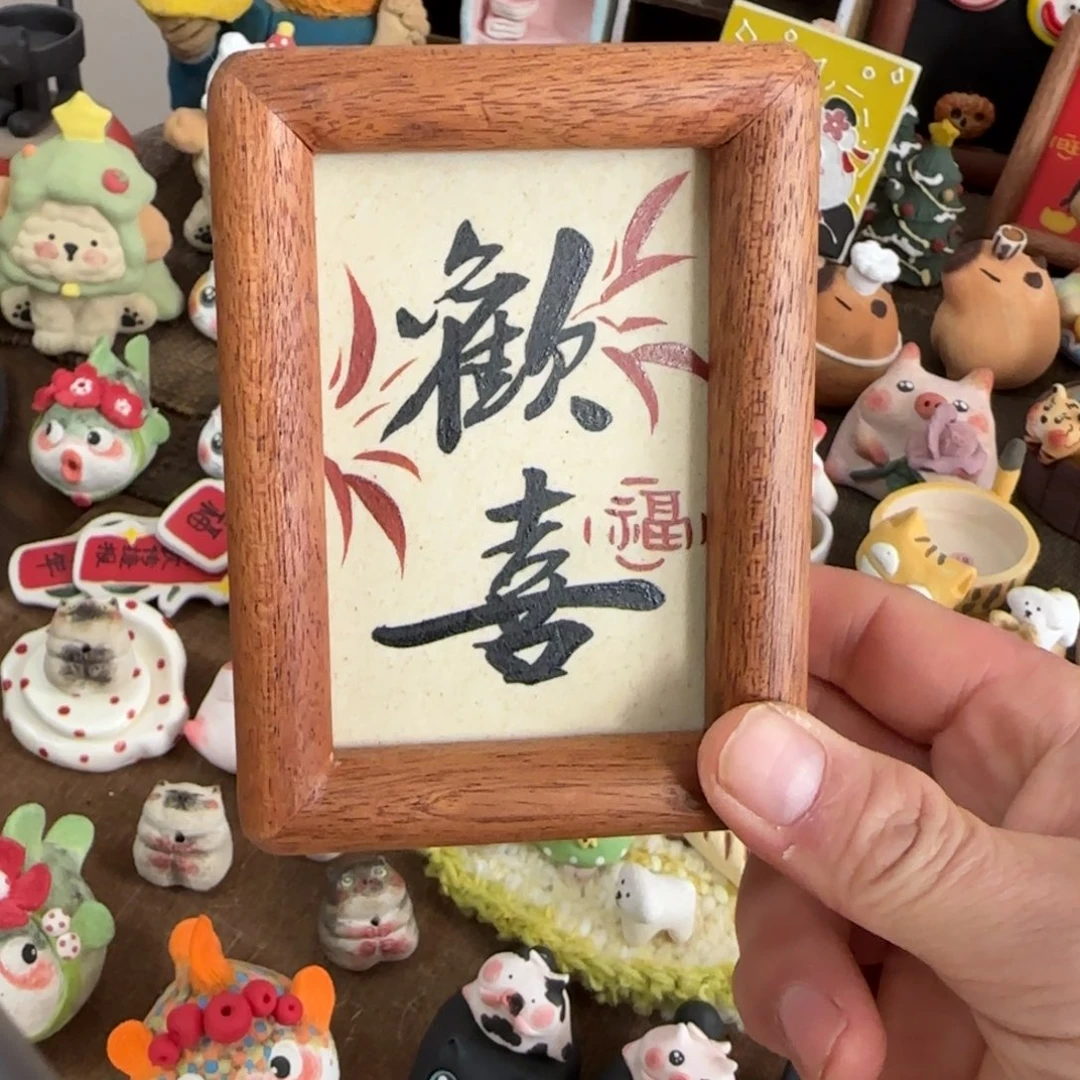 歡
喜
福